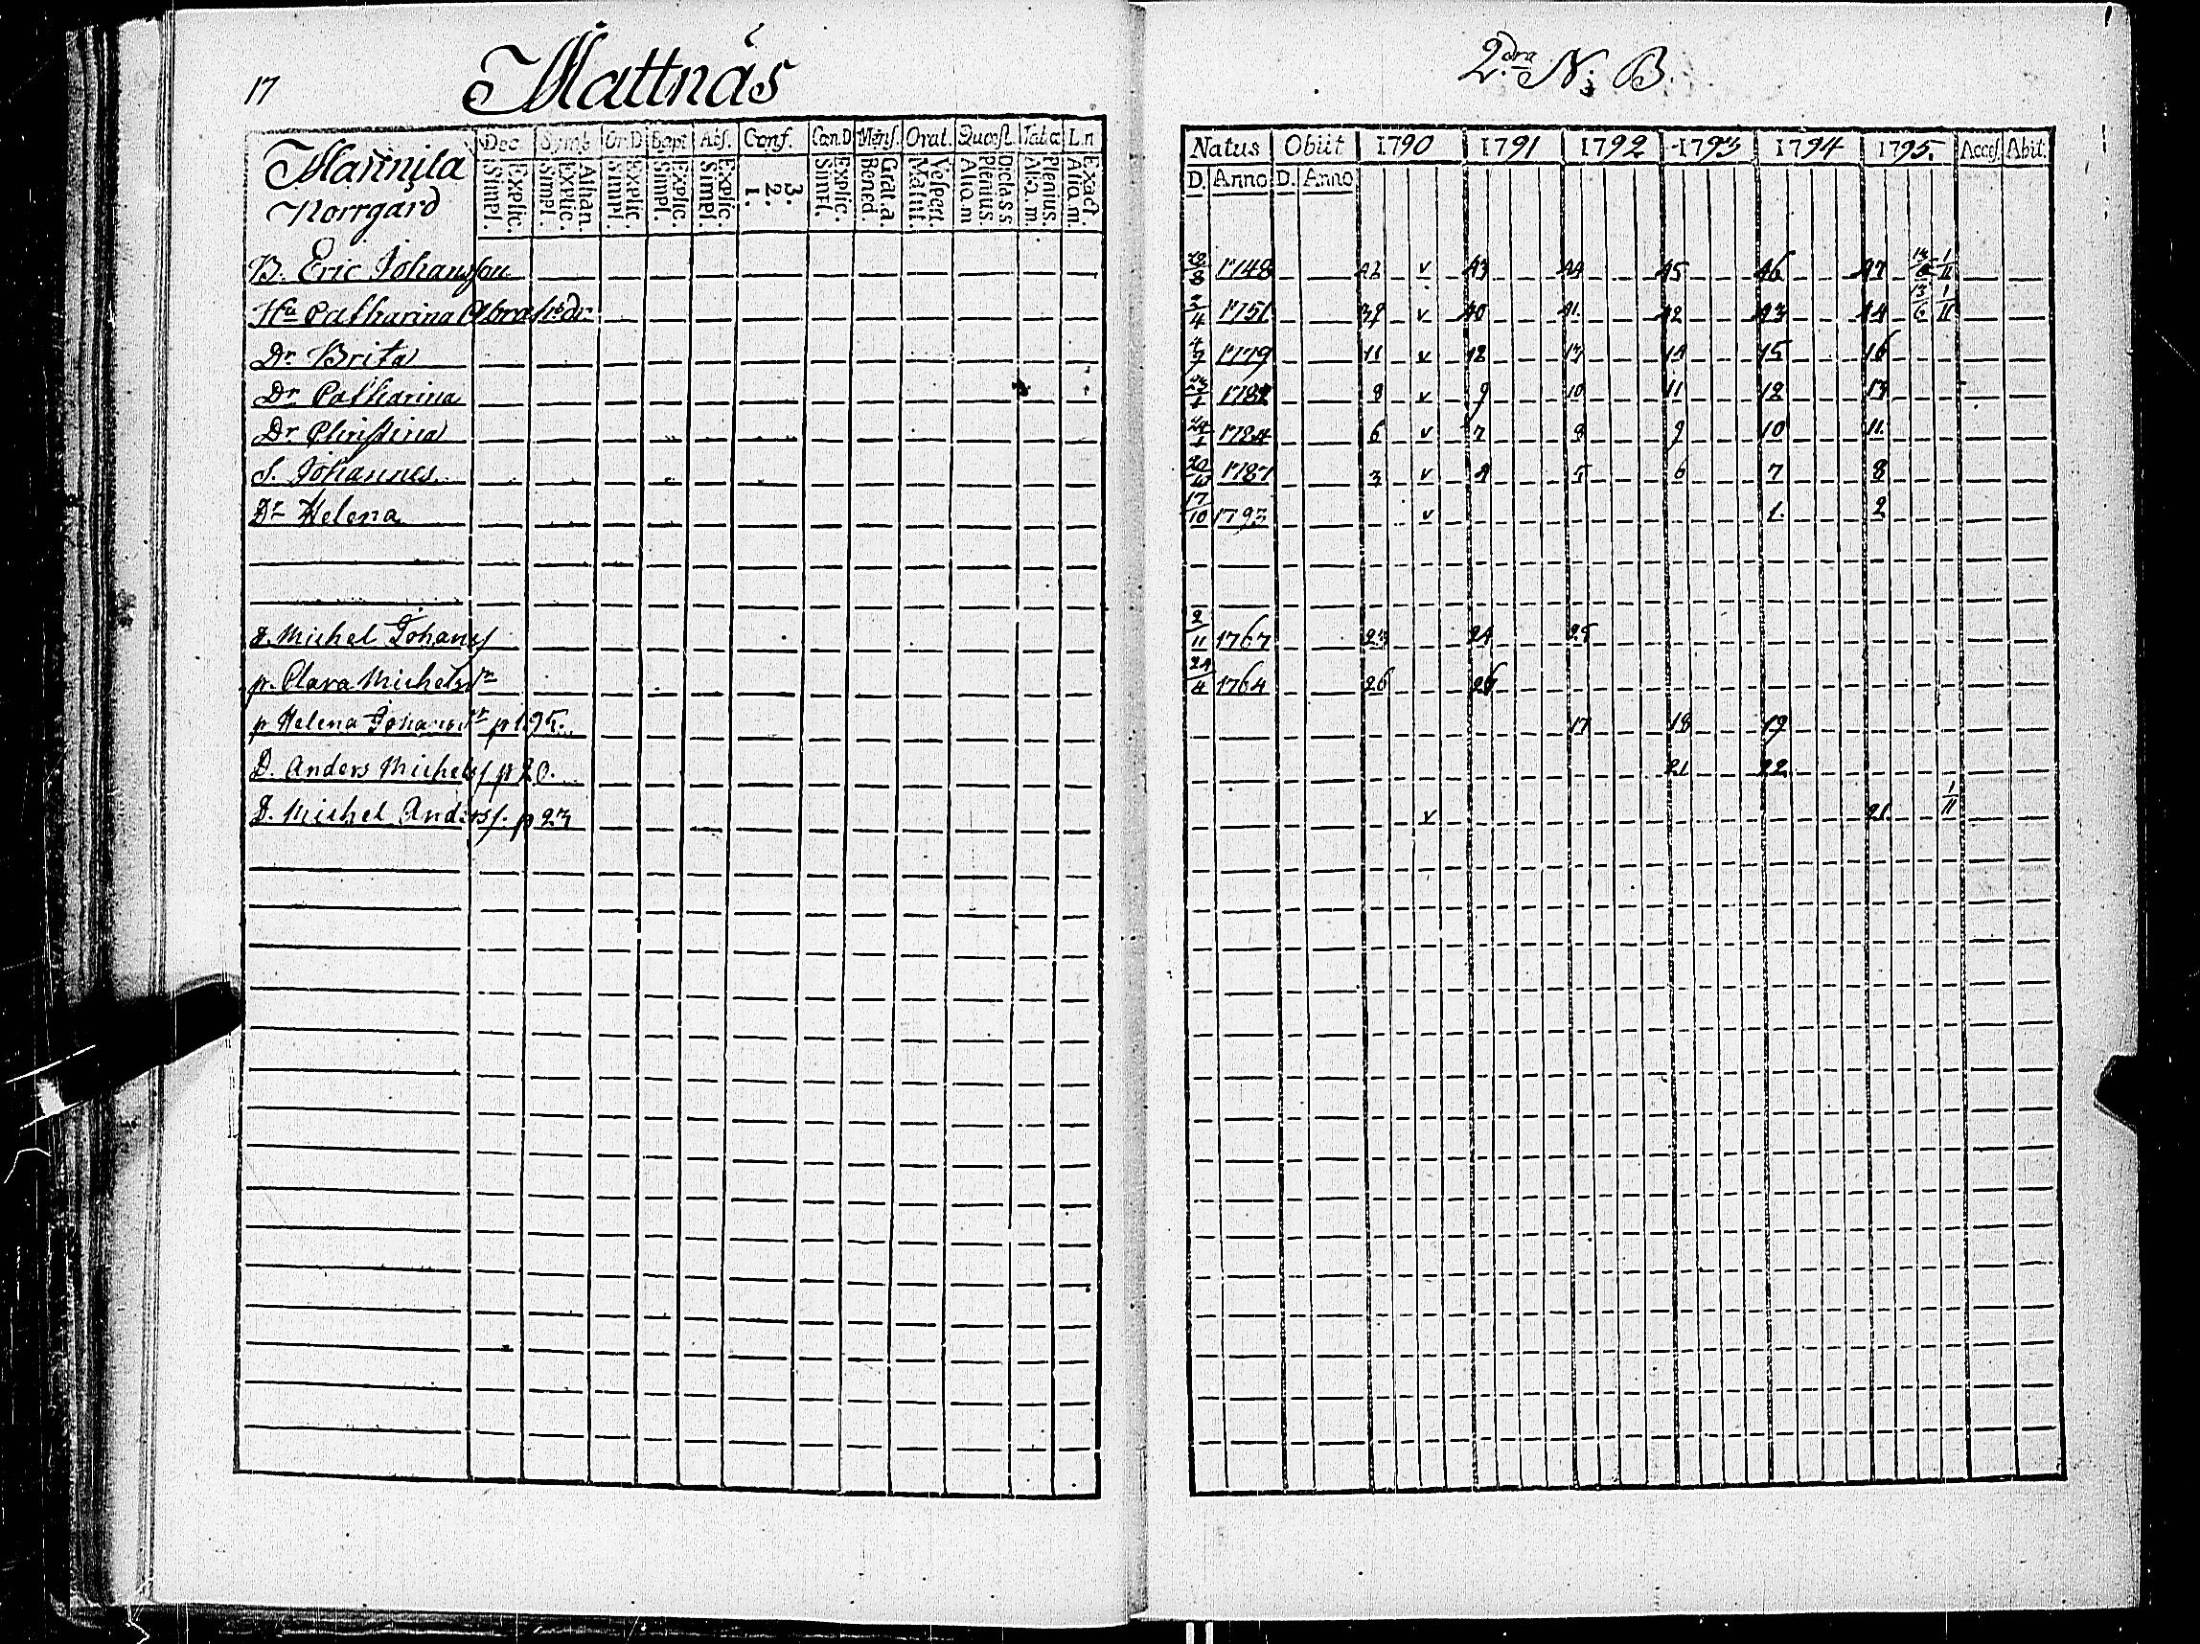 17
Mattnäs
Mannila
Norrgård
Dec. Symb Or.D Bapt Abs. Conf. Can.D Mens. Orat. Quæst Tab.æ L.n
Simpl. Explic. Simpl. Explic. Athan. Simpl. Explic. Simpl. Explic. Simpl. Explic. 1. 2. 3. Simpl. Explic. Bened. Grat.a. Matut. Vespert. Aliq.m Plenius Dicta s s. Aliq.m. Plenius. Aliq.m. Exact.
B. Eric Johansson
Hu Catharina Abrah:dr
Dr Brita
Dr Catharina
Dr Christina
S. Johannes
Dr Helena
D. Michel Johans
p. Clara Michelsdr
p Helena Johansdr p 195.
D. Anders Michels p 20.
D. Michel Anders. p 23
2dra N: B.
Natus Obiit 1790 1791 1792 1793 1794 1795. Acces. Abit.
D. Anno D. Anno
8 1748 42 v 43 44 45 46 47 1/11
2/4 1751 39 v 40 41 42 43 44 13/6 1/11
4/7 1779 11 v 12 13 14 15 16
1782 8 v 9 10 11 12 13
24/1 1784 6 v 7 8 9 10 11
20/10 1787 3 v 4 5 6 7 8
17/10 1793 v 1 2
2/11 1767 23 24 25
24/4 1764 26
17 18 19
21 22
v 21 1/11